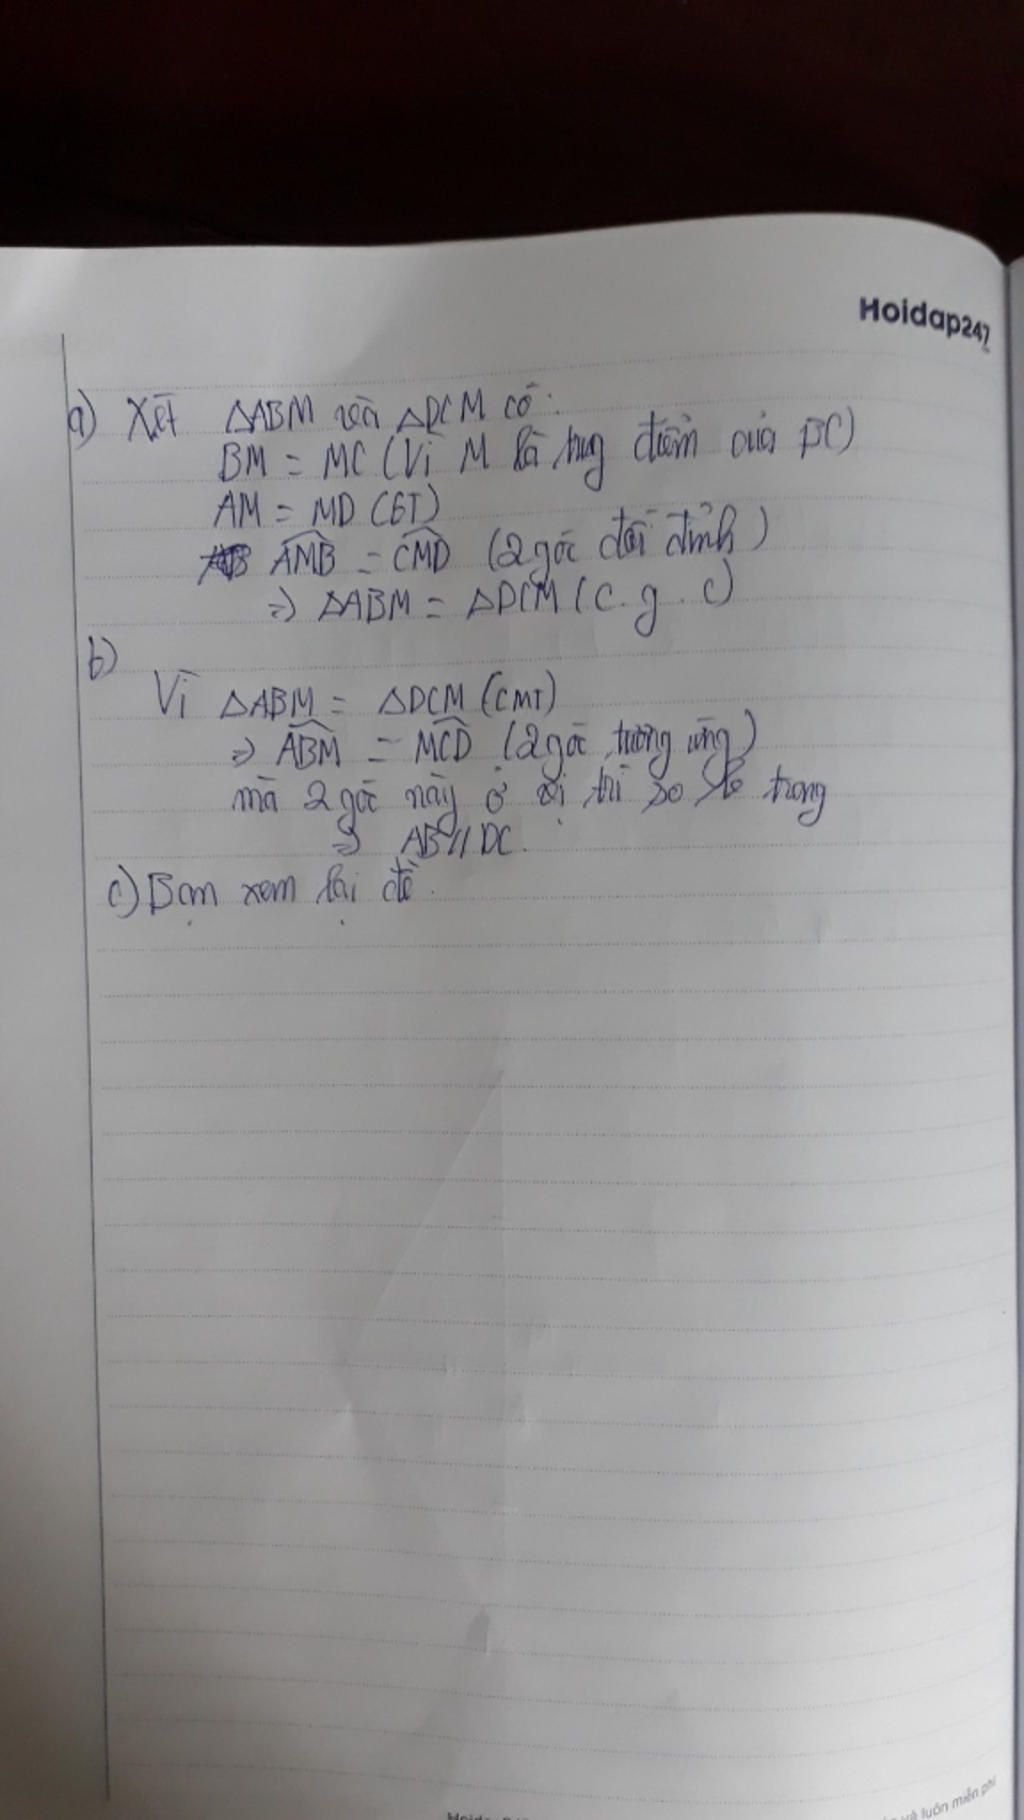 Hoidap247
a) Xét ΔABM và ΔDCM có:
BM = MC (Vì M là trung điểm của BC)
AM = MD (GT)
AMB = CMD (2 góc đối đỉnh)
=> ΔABM = ΔDCM (c.g.c)
b)
Vì ΔABM = ΔDCM (CMT)
=> ABM = MCD (2 góc tương ứng)
mà 2 góc này ở vị trí so le trong
=> AB // DC.
c) Bạn xem lại đề.
và luôn miễn phí